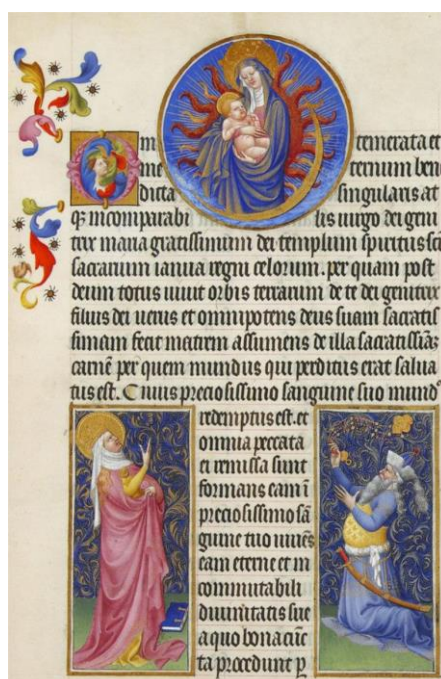 O m temerata et
me ternum bene
dicta singularis at
qȝ incomparabi lis uirgo dei geni
trix maria gratissimum dei templum spiritus sci
sacrarium ianua regni celorum. per quam post
deum totus uiuit orbis terrarum de te dei genitrix
filius dei uerus et omnipotens deus suam sacratis
simam fecit matrem assumens de illa sacratissiaȝ
carnē per quem mundus qui perditus erat salua
tus est. Cuiuis preciosissimo sanguine suo mundꝰ
redemptus est. et
omnia peccata
ei remissa sunt
formans eam ī
preciosissimo sā
guine tuo uiuēs
eam eterne et in
commutabili
diuinitatis sue
a quo bona cūc
ta procedunt ꝑ